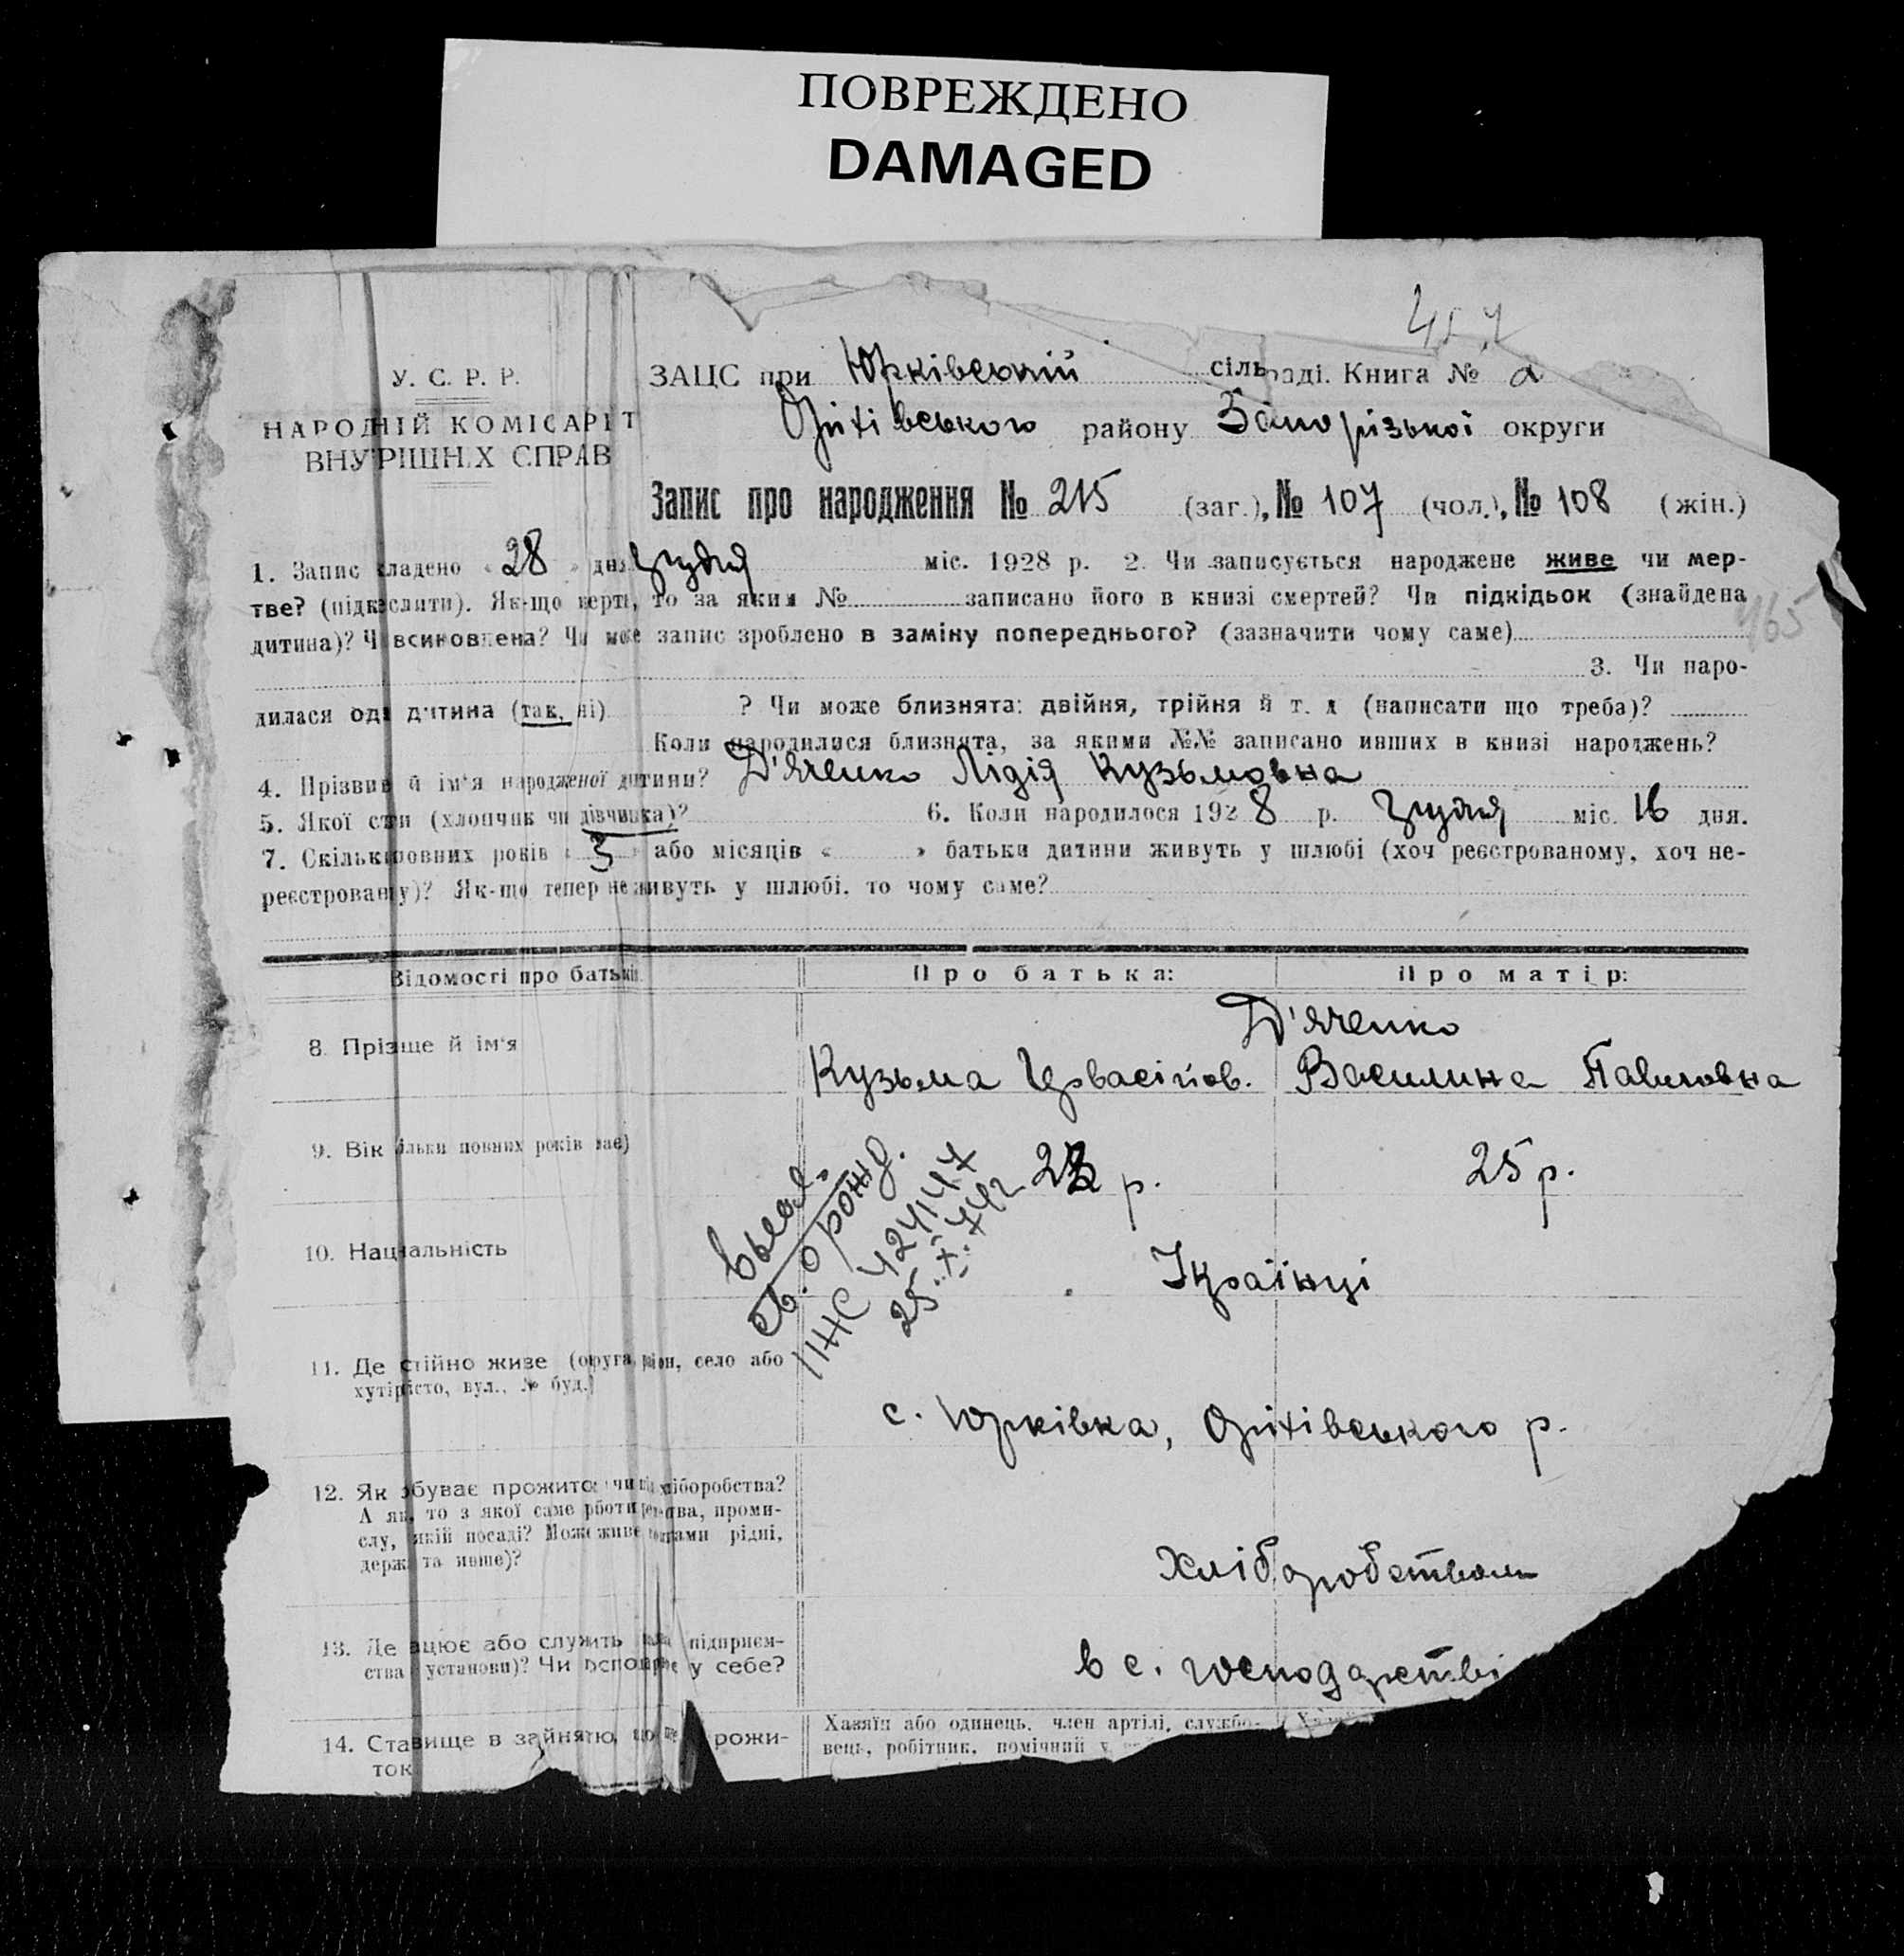 ПОВРЕЖДЕНО
DAMAGED
У. С. Р. Р.
НАРОДНІЙ КОМІСАРІТ
ВНУРІШНІХ СПРАВ
ЗАЦС при Юрківській сільраді. Книга № 2
Оріхівського району Запорізької округи
Запис про народження № 215 (заг.), № 107 (чол.), № 108 (жін.)
1. Запис кладено « 28 » дня грудня міс. 1928 р. 2. Чи записується народжене живе чи мер-
тве? (підкреслити). Як-що мертве, то за яким № записано його в книзі смертей? Чи підкідьок (знайдена
дитина)? Чи всиновлена? Чи може запис зроблено в заміну попереднього? (зазначити чому саме)
3. Чи наро-
дилася одна дитина (так, ні) ? Чи може близнята: двійня, трійня й т. д (написати що треба)?
Коли народилися близнята, за якими №№ записано инших в книзі народжень?
4. Прізвище й ім'я народженої дитини? Д'яченко Лідія Кузьмовна
5. Якої стати (хлопчик чи дівчинка)? 6. Коли народилося 1928 р. грудня міс. 16 дня.
7. Скільки повних років « 3 » або місяців « » батьки дитини живуть у шлюбі (хоч реєстрованому, хоч не-
реєстрованому)? Як-що тепер не живуть у шлюбі, то чому саме?
Відомості про батьків Про батька: Про матір:
Д'яченко
8. Прізвище й ім'я Кузьма Гервасійов. Василина Павловна
9. Вік (скільки повних років має) 23 р. 25 р.
св. о рожд.
ІЖС 424147
25.X.44г
10. Національність Українці
11. Де постійно живе (округа, район, село або
хутір, місто, вул., № буд.)
с. Юрківка, Оріхівського р.
12. Як здобуває прожиток: чи із хліборобства?
А як ні, то з якої саме роботи, проми-
слу, на якій посаді? Може живе коштами рідні,
держави та инше)?
Хліборобством
13. Де працює або служить підприєм-
ства (установи)? Чи господарює у себе?
в с. господарстві
14. Становище в зайняттю, що дає прожи-
ток
Хазяїн або одинець, член артілі, службо-
вець, робітник, помічний у